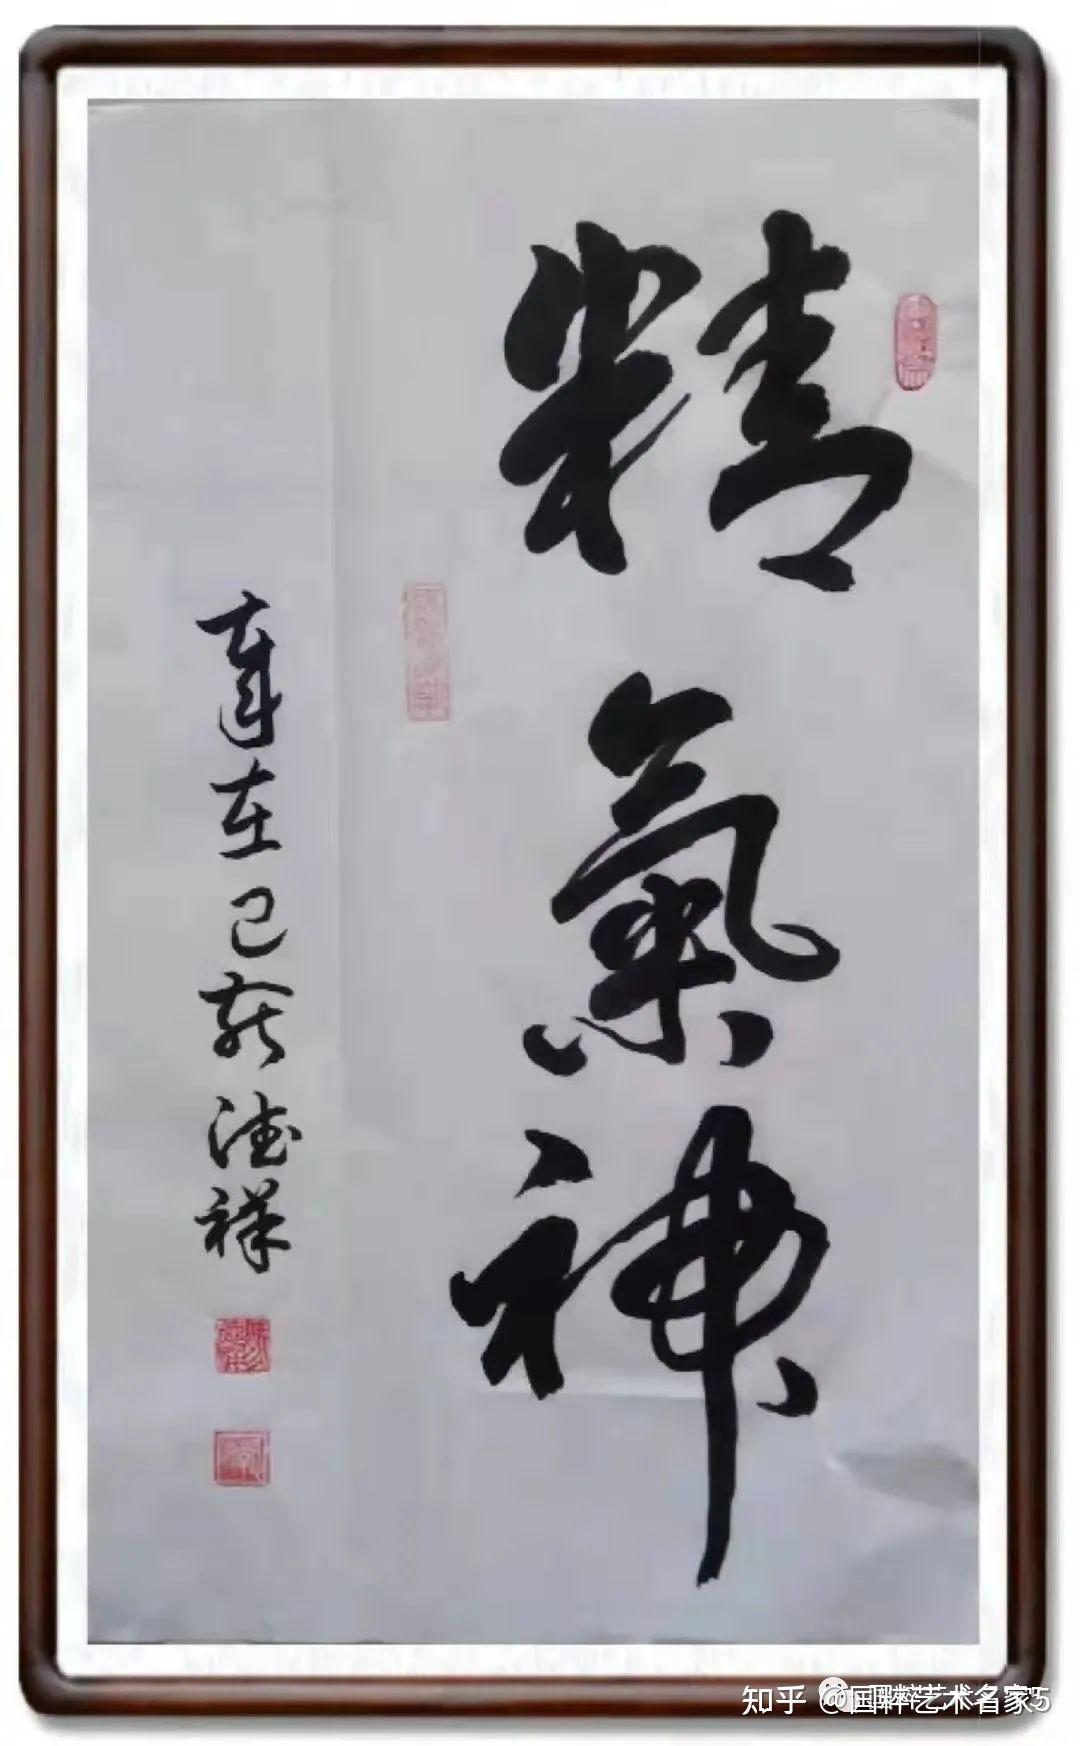 精氣神
歲在己亥德祥
知乎 @国粹艺术名家5